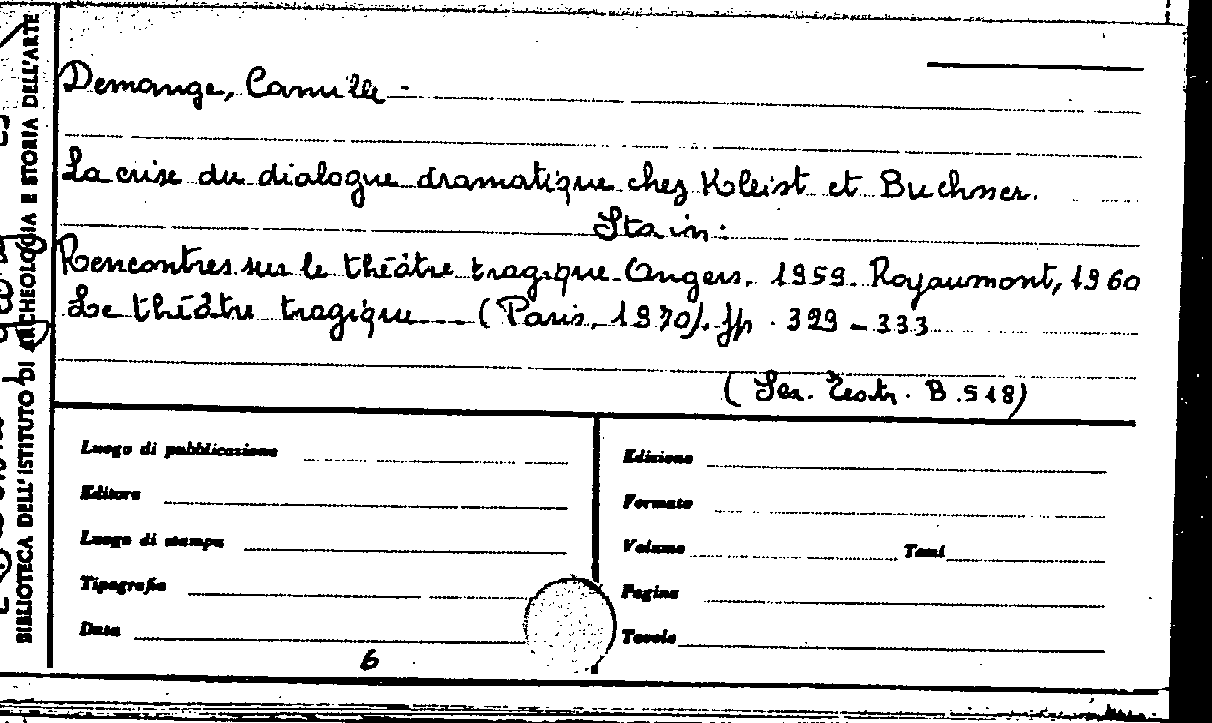 Demange, Camille -
La crise du dialogue dramatique chez Kleist et Buchner.
Sta in:
Rencontres sur le théâtre tragique Angers. 1959. Royaumont, 1960
Le théâtre tragique --- (Paris, 1970). pp. 329 - 333
( Sez. Teatr. B.518)
Luogo di pubblicazione
Editore
Luogo di stampa
Tipografia
Data
6
Edizione
Formato
Volume Tomi
Pagine
Tavole
BIBLIOTECA DELL'ISTITUTO DI ARCHEOLOGIA E STORIA DELL'ARTE